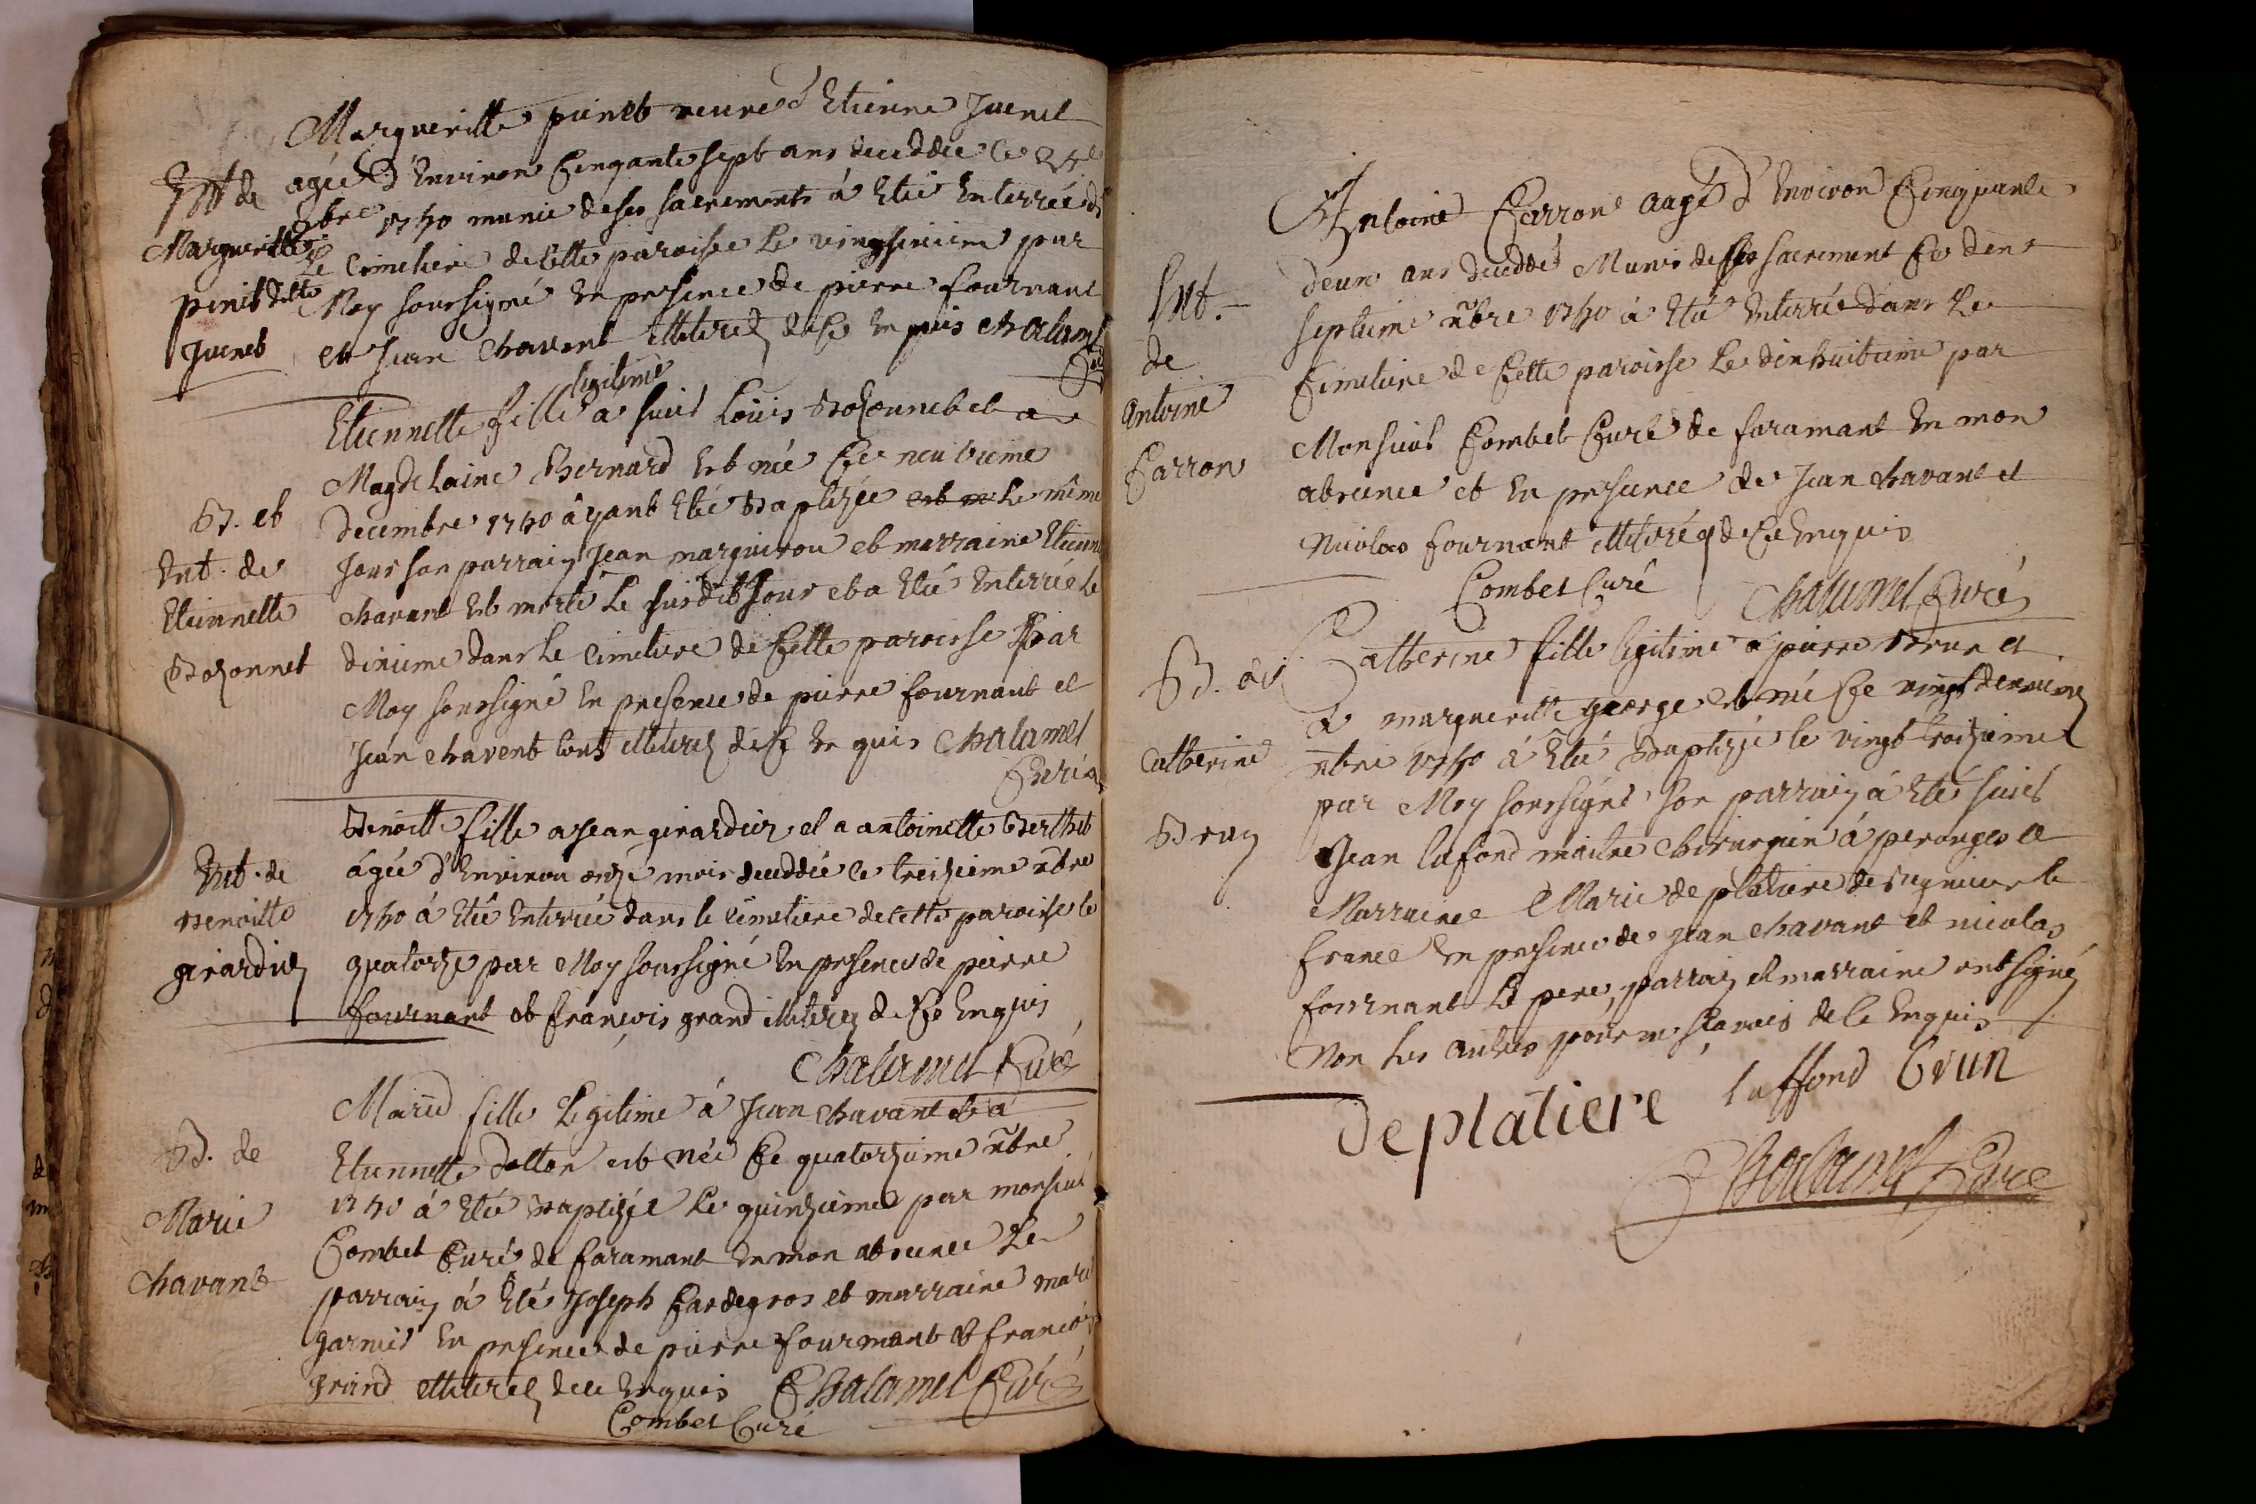 Margueritte pinet veuve d'Etienne Juenet
Ent de
Margueritte
pinet dette
Juenet
agée d'Environ Cinqante sept ans deceddée le
9bre 1740 munie de ses sacrements à Eté Enterrée ds
Le Cimetiere de Cette paroisse Le vingsixiem par
Moy soussigné En presence de pierre fournant
et Jean Chavent illiterez de Ce En quis Chalamel
Curé
Etiennette fille legitime a sieur Loüis Bozonnet et a
Magdelaine Bernard est née Ce neuvieme
B. et
Ent. de
Etiennette
Bozonnet
decembre 1740 âyant Eté Baptizée Le même
Jour son parrain Jean marguiron et marraine Etienne
chavant est morte Le susdit Jour et a Eté Enterrée Le
dixieme dans Le Cimetiere de Cette paroisse par
Moy soussigné En presence de pierre fournant et
Jean chavent tous illiterez de Ce En quis Chalamel
Curé
Benoitte fille a Jean girardier et a antoinette Berthet
Ent. de
Benoitte
girardier
âgée d'Environ onze mois deceddée le treizieme xbre
1740 à Eté Enterrée dans le Cimetiere de Cette paroisse le
quatorze par Moy soussigné En presence de pierre
fournant et françois grand illiterez de Ce Enquis
Chalamel Curé
Marie fille Legitime à Jean chavant et à
B. de
Marie
Chavant
Etiennette dotton est née Ce quatorzieme xbre
1740 à Eté Baptizée Le quinzieme par monsieur
Combet Curé de faramant En mon absence Le
parrain à Eté Joseph Cardegros et marraine marie
garnier En presence de pierre fournant et françois
grand illiterez de Ce Enquis Chalamel Curé
Combet Curé
Antoine Carron aagé d'Environ Cinquante
Ent.
de
Antoine
Carron
deux ans deceddé Munis de ses sacrement Ce dix
septieme xbre 1740 à Eté Enterré dans Le
Cimetiere de Cette paroisse Le dixhuitieme par
Monsieur Combet Curé de faramant En mon
absence et En presence de Jean chavant et
Nicolas fournant illiteréz de Ce Enquis
Combet Curé Chalamel Curé
Catherine fille legitime a pierre Brun et
B. de
Catherine
Brun
a margueritte george est née Ce vingt deuxieme
xbre 1740 à Eté Baptizée le vingt troizieme
par Moy soussigné son parrain à Eté sieur
Jean lafond maitre chirurgien à perouges et
Marraine Marie de platiere de seigneur le
france En presence de Jean chavant et nicolas
fournant Le pere, parrain et marraine ont signéz
Non les autres pour ne sçavoir de Ce Enquis
deplatiere laffond brun
Chalamel Curé